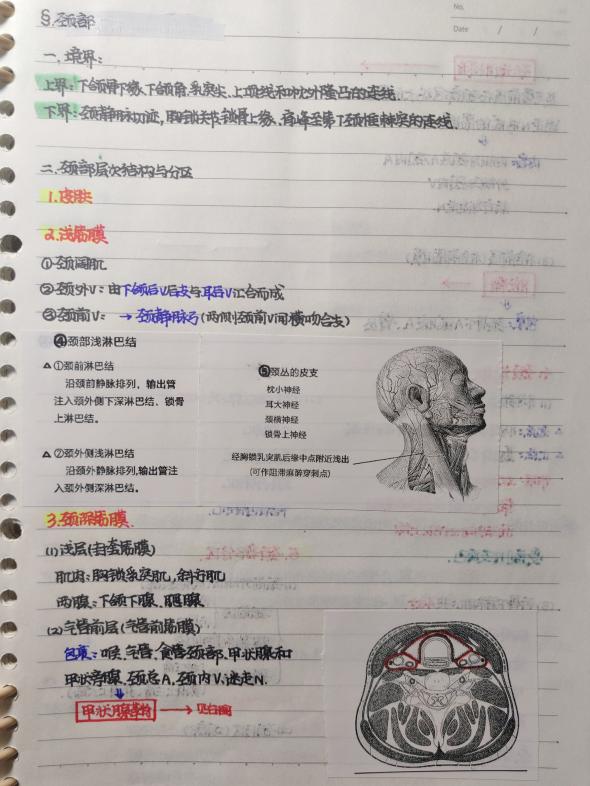 No.
Date / /
§.颈部
一.境界:
上界:下颌骨下缘、下颌角、乳突尖、上项线和枕外隆凸的连线.
下界:颈静脉切迹,胸锁关节、锁骨上缘、肩峰至第7颈椎棘突的连线.
二.颈部层次结构与分区
1.皮肤
2.浅筋膜
①颈阔肌
②颈外V:由下颌后V后支与耳后V汇合而成
③颈前V: → 颈静脉弓(两侧颈前V间横吻合支)
④颈部浅淋巴结
△①颈前淋巴结
沿颈前静脉排列,输出管
注入颈外侧下深淋巴结、锁骨
上淋巴结。
△②颈外侧浅淋巴结
沿颈外静脉排列,输出管注
入颈外侧深淋巴结。
⑤颈丛的皮支
枕小神经
耳大神经
颈横神经
锁骨上神经
经胸锁乳突肌后缘中点附近浅出
(可作阻滞麻醉穿刺点)
3.颈深筋膜.
(1)浅层(封套筋膜)
肌肉:胸锁乳突肌,斜方肌
两腺:下颌下腺、腮腺
(2)气管前层(气管前筋膜)
包裹:喉、气管、食管颈部、甲状腺和
甲状旁腺、颈总A、颈内V、迷走N.
↓
甲状腺鞘 →